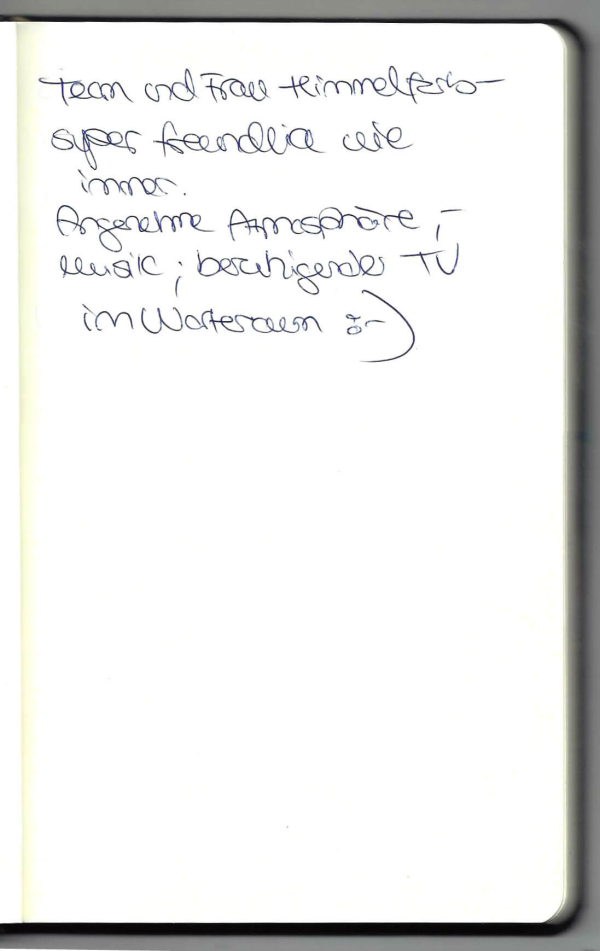 Team und Frau Himmelfarb –
super freundlich wie
immer.
Angenehme Atmosphäre, –
Musik; beruhigender TV
im Warteraum :-)